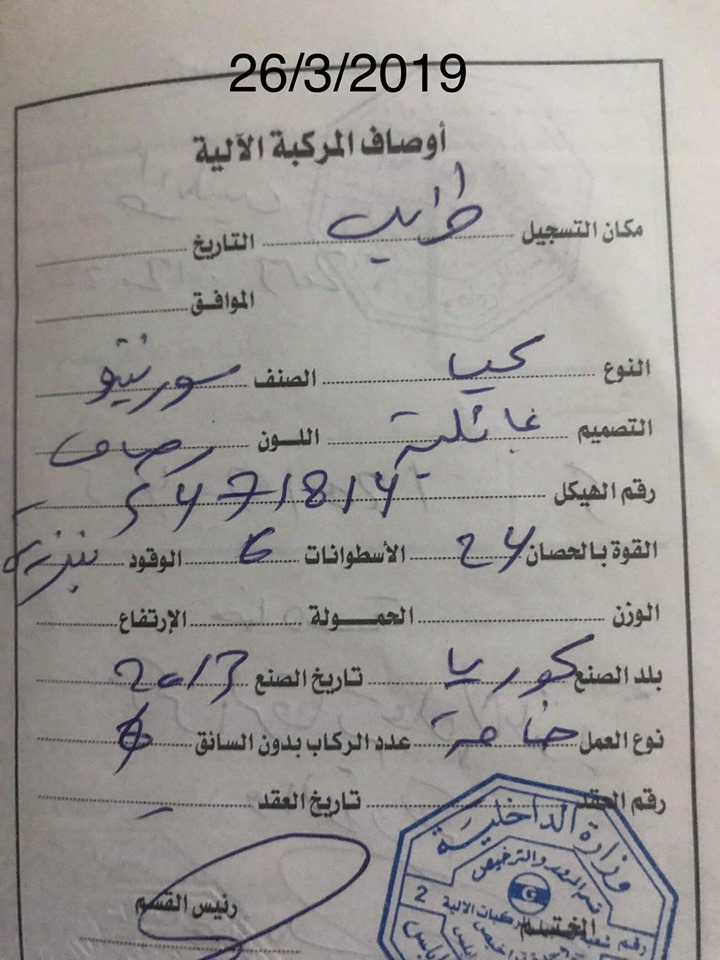 26/3/2019
أوصاف المركبة الآلية
مكان التسجيل طرابلس التاريخ
الموافق
النوع كيا الصنف سورنتو
التصميم عائلية اللون رصاصي
رقم الهيكل 5471814
القوة بالحصان 24 الأسطوانات 6 الوقود بنزين
الوزن الحمولة الإرتفاع
بلد الصنع كوريا تاريخ الصنع 2013
نوع العمل خاصة عدد الركاب بدون السائق
رقم العقد تاريخ العقد
وزارة الداخلية
قسم المرور والتراخيص
2
رئيس القسم
الختم